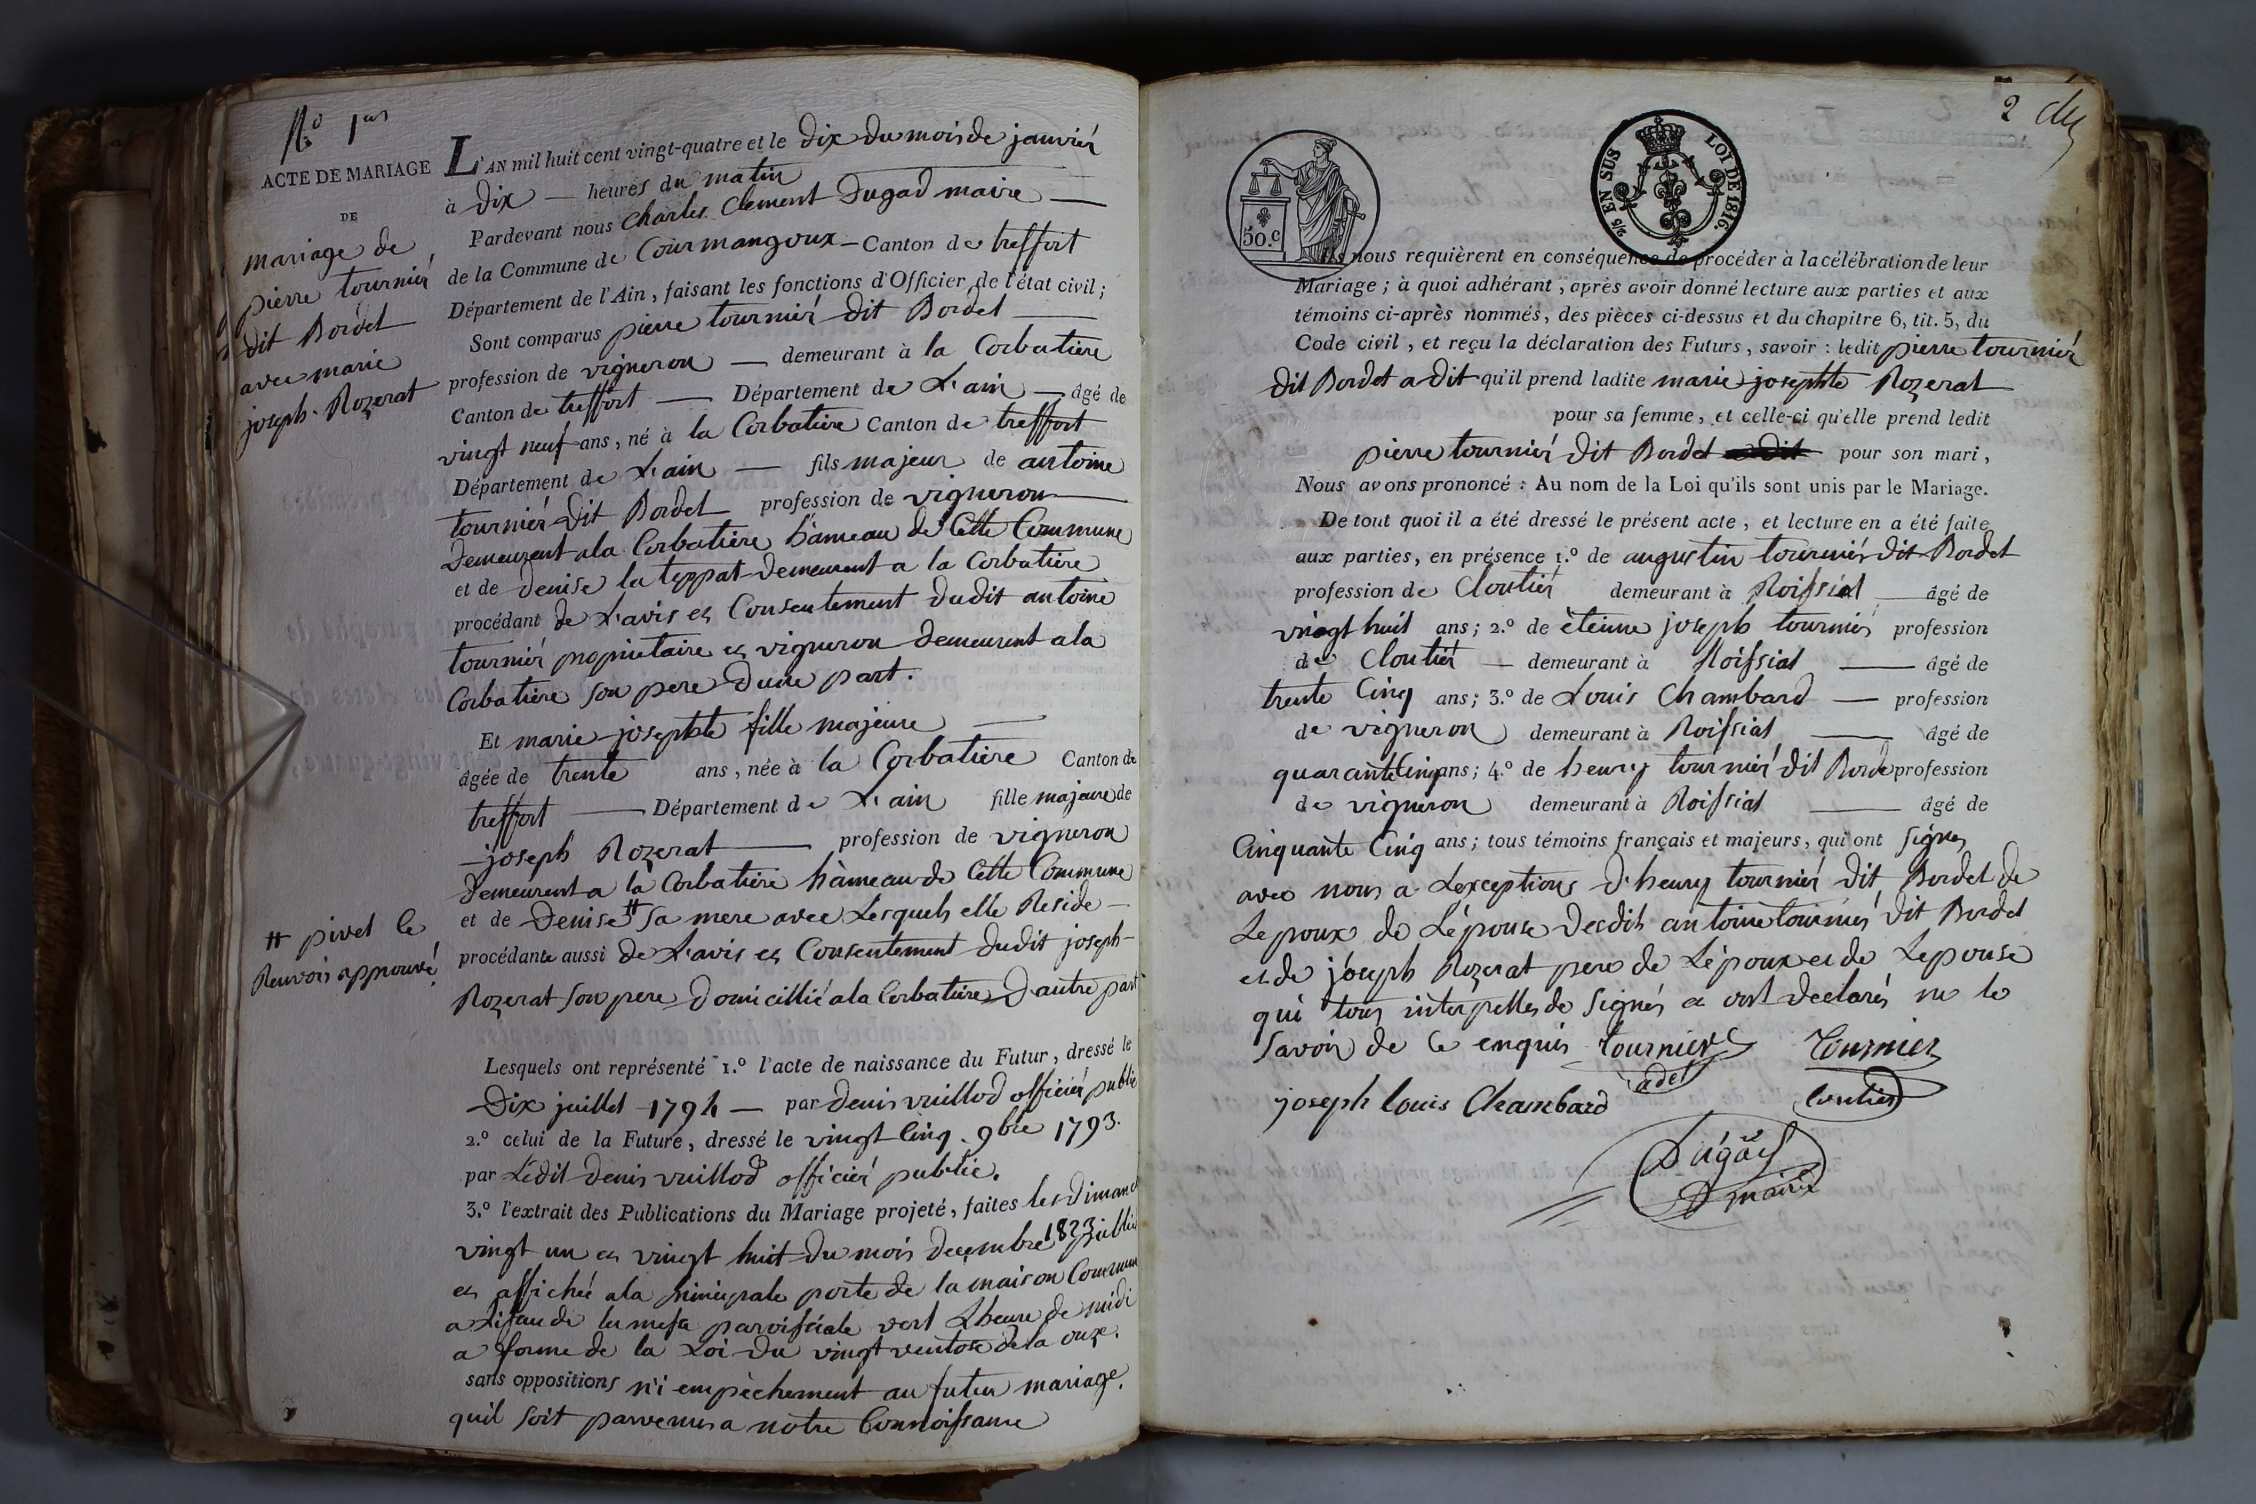 N.º 1er
ACTE DE MARIAGE
DE
mariage de
pierre tourniér
dit Bordet
avec marie
joseph. Rozerat
# pivet le
Renvois approuvé
L'AN mil huit cent vingt-quatre et le dix du mois de janviér
à dix — heures du matin
Pardevant nous Charles Clement Dugad maire —
de la Commune de Courmangoux — Canton de treffort
Département de l'Ain, faisant les fonctions d'Officier de l'état civil;
Sont comparus pierre tourniér dit Bordet —
profession de vigneron — demeurant à la Corbatiere
Canton de treffort — Département de L'ain — âgé de
vingt neuf ans, né à la Corbatiere Canton de treffort
Département de L'ain — fils majeur de antoine
tourniér dit Bordet profession de vigneron —
Demeurent a la Corbatiere hâmeau de Cette Commune
et de denise la teppat demeurent a la Corbatiere
procédant de L'avis et Consentement dudit antoine
tourniér propriétaire et vigneron demeurent a la
Corbatiere son pere dune part.
Et marie josephte fille majeure —
âgée de trente ans, née à la Corbatiere Canton de
treffort — Département de L'ain fille majeure de
joseph Rozerat — profession de vigneron
Demeurent a la Corbatiere hâmeau de Cette Commune
et de Denise # sa mere avec Lesquels elle Reside —
procédante aussi de L'avis et Consentement dudit joseph
Rozerat son pere domicillié a la Corbatiere D'autre part
Lesquels ont représenté 1.º l'acte de naissance du Futur, dressé le
Dix juillet 1794 — par denis vuillod officiér public
2.º celui de la Future, dressé le vingt Cinq 9bre 1793.
par Ledit denis vuillod officiér public.
3.º l'extrait des Publications du Mariage projeté, faites les dimanc
vingt un et vingt huit du mois decembre 1823 publié
et affiché a la principale porte de la maison Commun
a Lissue de la messe parroissiale vert Lheure de midi
a forme de la Loi du vingt ventose de la onze.
sans oppositions n'i empèchement au futur mariage.
quil soit parvenus a notre Connoissance
2
50.c
2/5 EN SUS
LOI DE 1816.
Ils nous requièrent en conséquence de procéder à la célébration de leur
Mariage; à quoi adhérant, après avoir donné lecture aux parties et aux
témoins ci-après nommés, des pièces ci-dessus et du chapitre 6, tit. 5, du
Code civil, et reçu la déclaration des Futurs, savoir: ledit pierre tourniér
dit Bordet a dit qu'il prend ladite marie josephte Rozerat
pour sa femme, et celle-ci qu'elle prend ledit
pierre tourniér dit Bordet a dit pour son mari,
Nous avons prononcé: Au nom de la Loi qu'ils sont unis par le Mariage.
De tout quoi il a été dressé le présent acte, et lecture en a été faite
aux parties, en présence 1.º de augustin tourniér dit Bordet
profession de Cloutiér demeurant à Roissiat — âgé de
vingt huit ans; 2.º de ètienne joseph tourniér profession
de Cloutiér — demeurant à Roissiat — âgé de
trente Cinq ans; 3.º de Louis Chambard — profession
de vigneron demeurant à Roissiat — âgé de
quarante Cinq ans; 4.º de henry tourniér dit Borde profession
de vigneron demeurant à Roissiat — âgé de
Cinquante Cinq ans; tous témoins français et majeurs, qui ont signes
avec nous a Lexceptions d'henry tourniér dit Bordet de
Lepoux de Lépouse desdits antoine tourniér dit Bordet
et de joseph Rozerat pere de Lépoux et de Lepouse
qui tous interpellés de signés et ont declarés ne le
savoir de ce enquis tournier Tournier
cadet cloutier
joseph louis Chambard
Dugad
maire